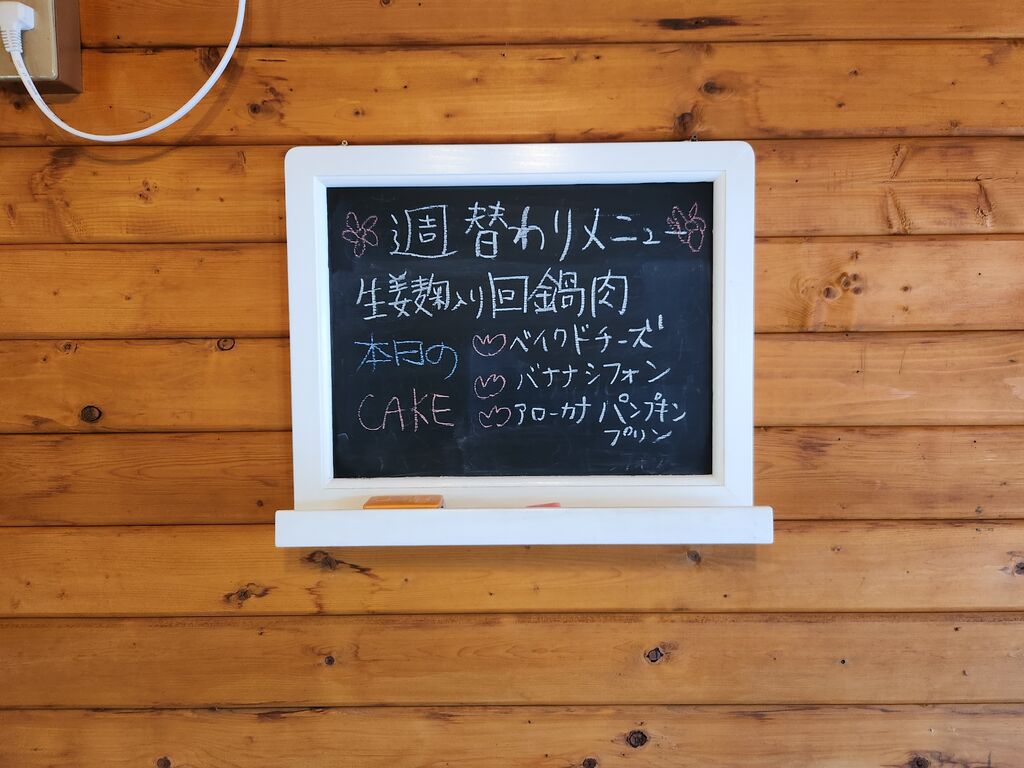 週替わりメニュー
生姜麹入り回鍋肉
本日の
CAKE
ベイクドチーズ
バナナシフォン
アローカナパンプキン
プリン